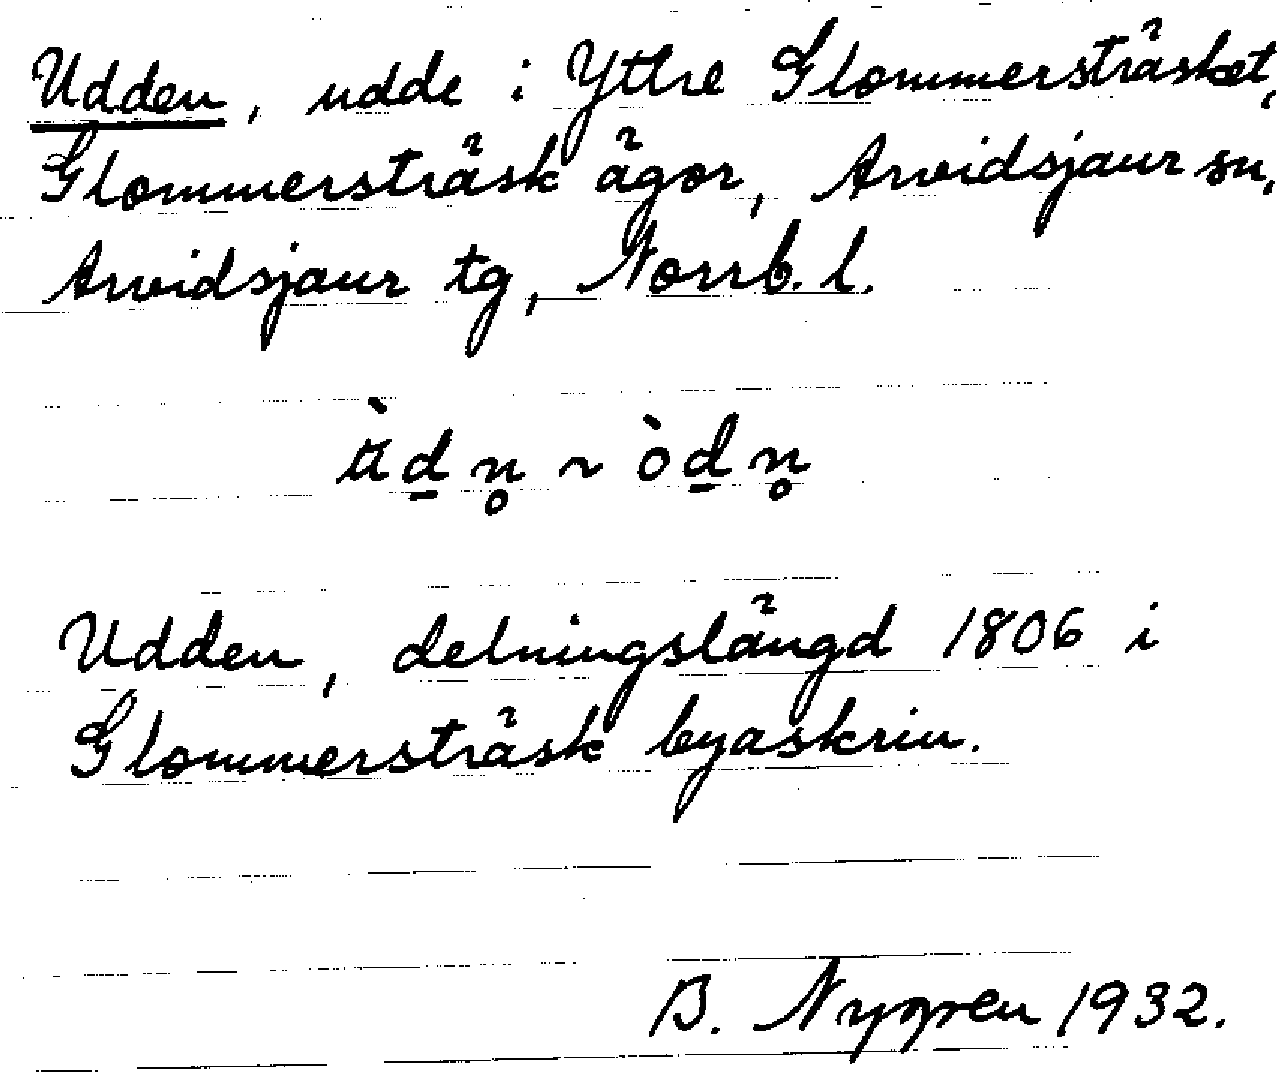 Udden, udde i Yttre Glommersträsket,
Glommersträsk ägor, Arvidsjaur sn,
Arvidsjaur tg, Norrb. l.
ὰd̲n̥ ~ òd̲n̥
Udden, delningslängd 1806 i
Glommersträsk byaskrin.
B. Nygren 1932.